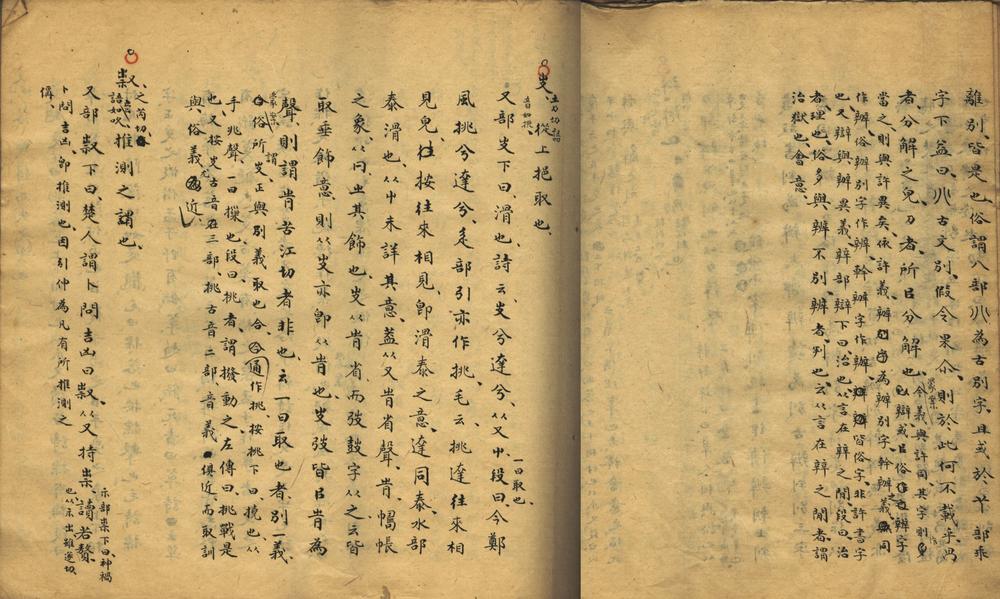 離別、皆是也、俗謂八部𠔁為古別字、且或於丫部乖
字下益曰、𠔁古文別、假令果尒、則於此何不載乎、冎
者、分解之皃、刀者、所㠯分解也、
今義與許同、其字則
當之、則與許異矣、依許義辧為辧別字、幹辧義同
作辧、俗辧別字作辨、幹辧字作辦、皆俗字、非許書字
也、又辯與辧異義、辡部辯下曰、治也、从言在辡之閒、段曰、治
者、理也、俗多與辨不別、辨者、判也、云从言在辡之閒者、謂
治獄也、會意、
㚐、土刀切、
音如
從上挹取也、
又部㚐下曰、滑也、詩云、㚐兮達兮、从又屮、段曰、今鄭
一曰取也、
風挑兮達兮、辵部引亦作挑、毛云、挑達往來相
見皃、往按往來相見、卽滑泰之意、達同泰、水部
泰、滑也、从屮未詳其意、蓋从又𡴀省聲、𡴀、幬帳
之象、从冂、㞢其飾也、㚐从𡴀省、而弢鼓字从之、云皆
取垂飾意、則从㚐亦卽从𡴀也、㚐弢皆㠯𡴀為
聲、則謂𡴀苦江切者非也、云一曰取也者、別一義、
俗謂
所㚐正與別義取也合、通作挑、按挑下曰、撓也、从
手、兆聲、一曰摷也、段曰、挑者、謂撥動之、左傳曰、挑戰是
也、又按㚐古音在三部、挑古音二部、音義俱近、而取訓
與俗義尤近、
㱁、又、之芮切、
語如吹、
推測之謂也、
又部㱁下曰、楚人謂卜問吉凶曰㱁、从又持祟、讀若贅、
示部祟下曰、神禍
也、从示出、雖遂切、
卜問吉凶、卽推測也、因引伸為凡有所推測之
偁、